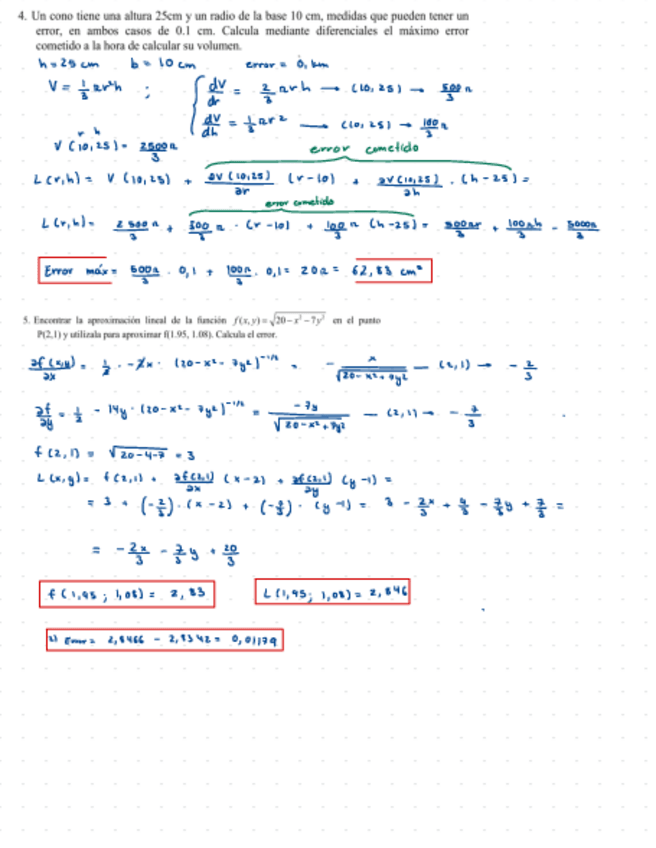 4. Un cono tiene una altura 25cm y un radio de la base 10 cm, medidas que pueden tener un
error, en ambos casos de 0.1 cm. Calcula mediante diferenciales el máximo error
cometido a la hora de calcular su volumen.
h=25 cm b=10 cm error =
V = 1/3 πr²h ; dV/dr = 2/3 πrh → (10,25) → 500/3 π
dV/dh = 1/3 πr² → (10,25) → 100/3 π
V(10,25) = 2500π/3
error cometido
L(r,h) = V(10,25) + ∂V(10,25)/∂r (r-10) + ∂V(10,25)/∂h · (h-25) =
error cometido
L(r,h) = 2500π/3 + 500/3 π · (r-10) + 100/3 π (h-25) = 500πr/3 + 100πh/3 - 5000π/3
Error máx = 500π/3 · 0,1 + 100π/3 · 0,1 = 20π = 62,83 cm³
5. Encontrar la aproximación lineal de la función f(x,y)=√20-x²-7y² en el punto
P(2,1) y utilízala para aproximar f(1.95, 1.08). Calcula el error.
∂f(x,y)/∂x = 1/2 · -2x · (20-x²-7y²)^-1/2 = - x/√20-x²+7y² — (2,1) → -2/3
∂f/∂y = 1/2 - 14y · (20-x²-7y²)^-1/2 = -7y/√20-x²+7y² — (2,1) → -7/3
f(2,1) = √20-4-7 = 3
L(x,y) = f(2,1) + ∂f(2,1)/∂x (x-2) + ∂f(2,1)/∂y (y-1) =
= 3 + (-2/3) · (x-2) + (-7/3) · (y-1) = 3 - 2x/3 + 4/3 - 7/3 y + 7/3 =
= -2x/3 - 7/3 y + 20/3
f(1,95; 1,08) = 2,83
L(1,95; 1,08) = 2,846
Error = 2,8466 - 2,8342 = 0,01179